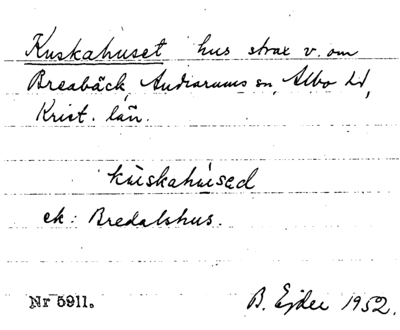 Kuskahuset hus strax v. om
Breabäck, Andrarums sn, Albo hd,
Krist. län.
kùskahúsed
ek: Bredalshus.
Nr 5911.
B. Ejder 1952.